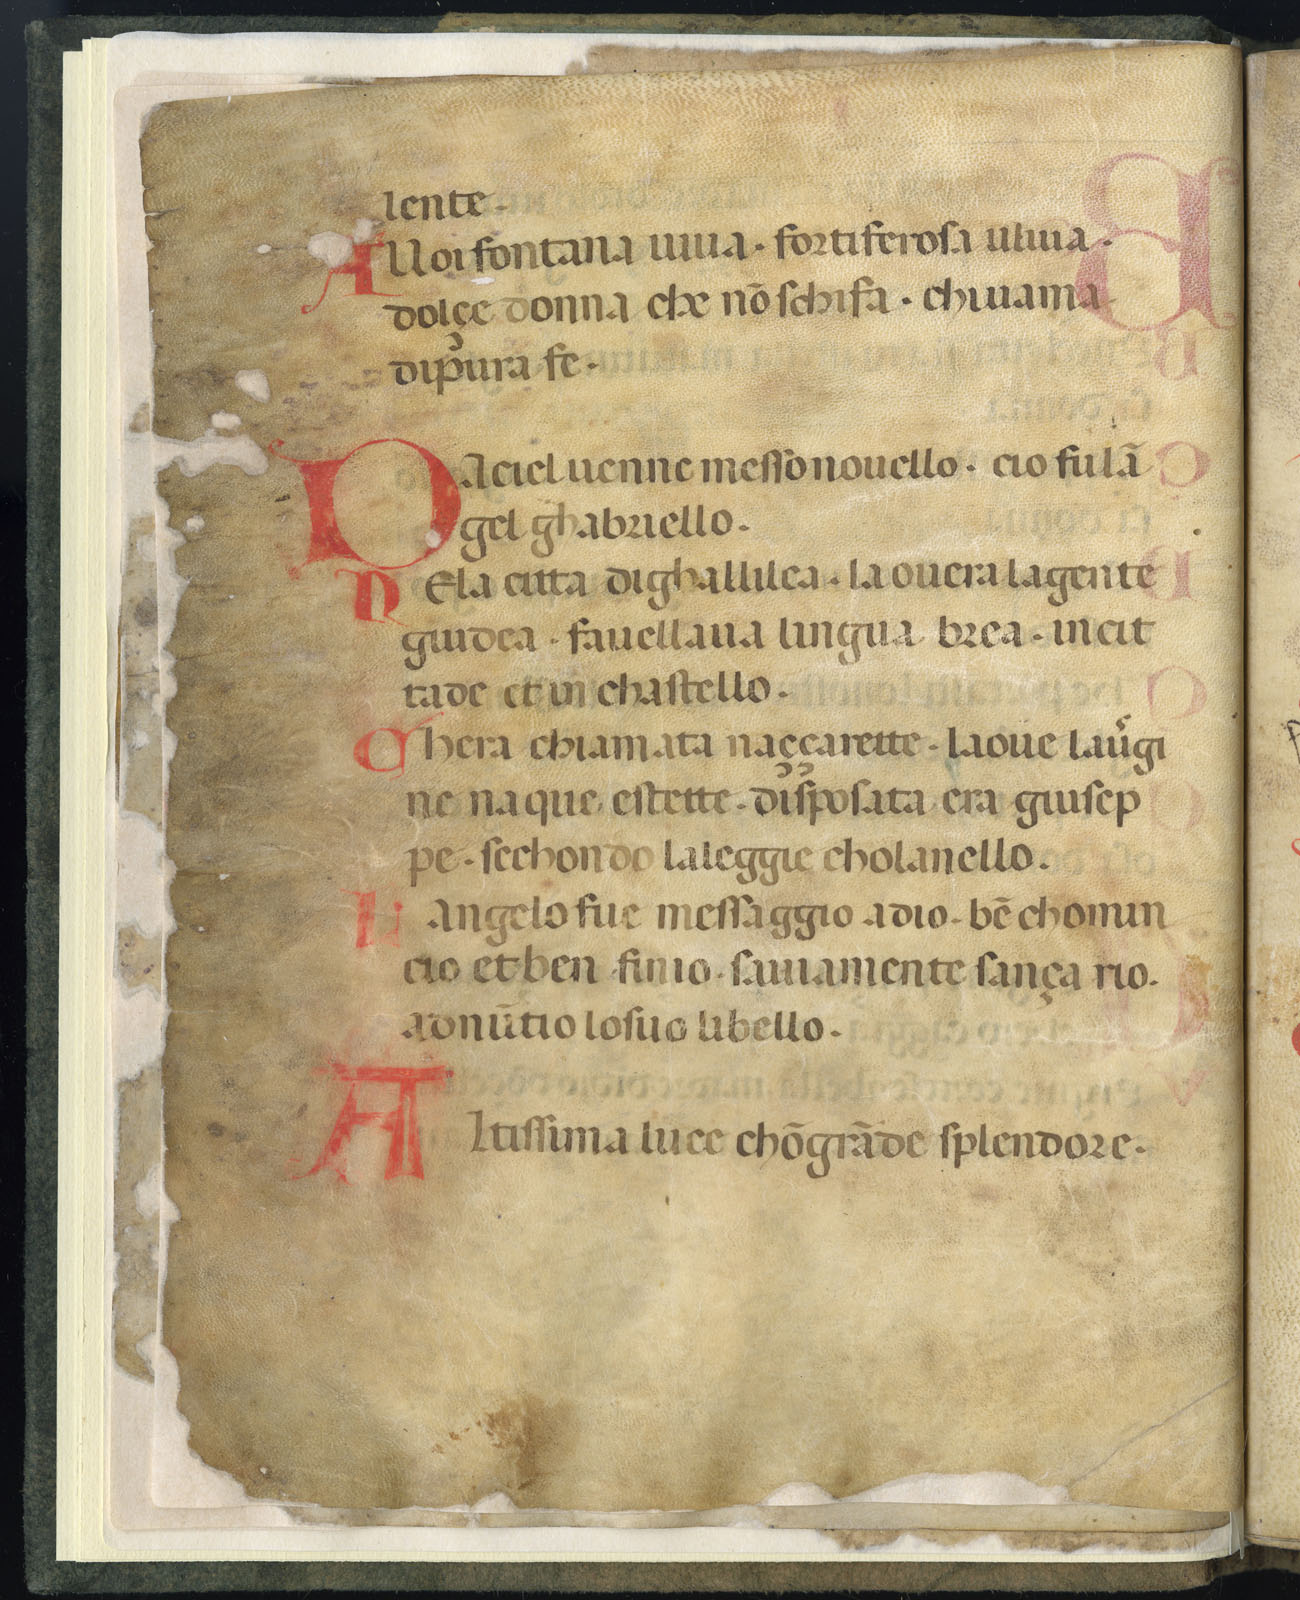 lente.
A Uoi fontana uiua. fortiferosa uliua.
dolçe donna che nō schifa. chiuama
dip̄ura fe.
D A ciel uenne messo nouello. cio fu lā
gel ghabriello.
N Ela citta dighallilea. la ouera lagente
guidea. fauellaua lingua brea. in cit
tade et in chastello.
C hera chiamata naççarette. laoue lau̓gi
ne naque estette. disposata era giusep
pe. sechondo laleggie cholanello.
L Angelo fue messaggio adio. bē chomin
cio et ben finio. sauiamente sança rio.
adnūtio losuo libello.
A ltissima luce chō grāde splendore.